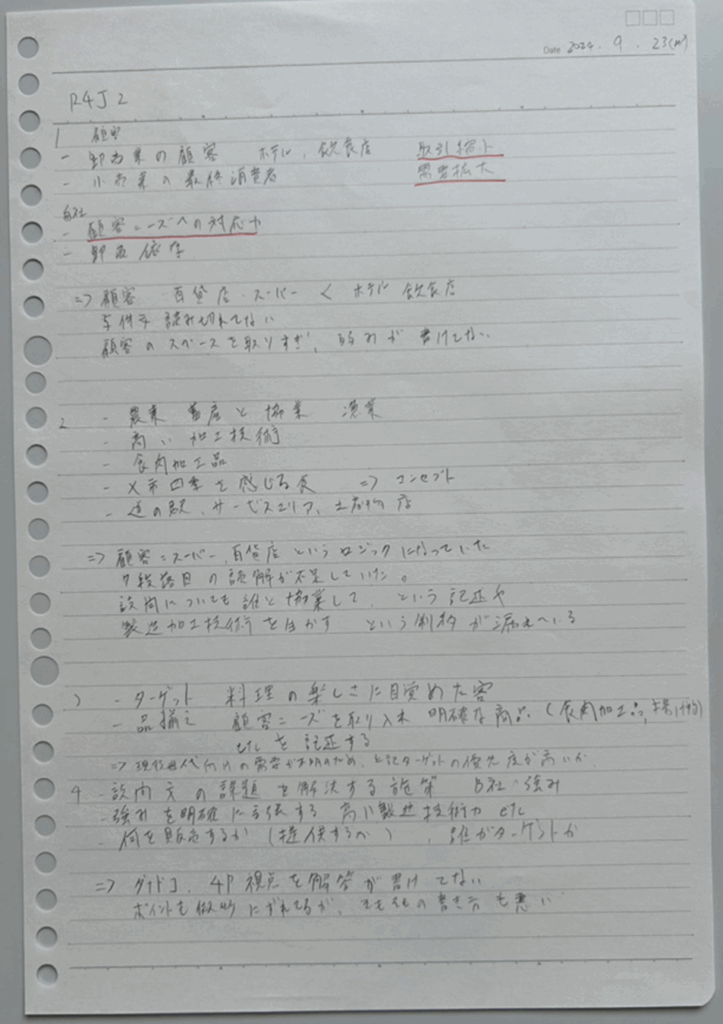 Date 2024. 9. 23(月)
R4J2
1 顧客
- 卸売業の顧客 ホテル、飲食店 取引縮小
- 小売業の最終消費者 需要拡大
自社
- 顧客ニーズへの対応力
- 卸売依存
⇒ 顧客 百貨店・スーパー < ホテル 飲食店
与件を読み切れてない
顧客のスペースを取りすぎ、弱みが書けてない
2 - 農業 畜産と協業 漁業
- 高い加工技術
- 食肉加工品
- X市四季を感じる食 ⇒ コンセプト
- 道の駅、サービスエリア、土産物店
⇒ 顧客=スーパー、百貨店というロジックになっていた
7段落目の読解が不足していた。
設問についても誰と協業して、という記述や
製造加工技術を生かす という制約が漏れている
3 - ターゲット 料理の楽しさに目覚めた客
- 品揃え 顧客ニーズを取り入れ 明確な商品(食肉加工品、
etcを記述する
⇒ 現役世代向けの需要が不明のため、上記ターゲットの優先度が高いか
4 - 設問文の課題を解決する施策 B社の強み
- 強みを明確に主張する 高い製造技術力 etc
- 何を販売するか(提供するか)、誰がターゲットか
⇒ ダナドコ、4P視点を解答が書けてない
ポイントも微妙にずれてるが、そもそもの書き方も悪い